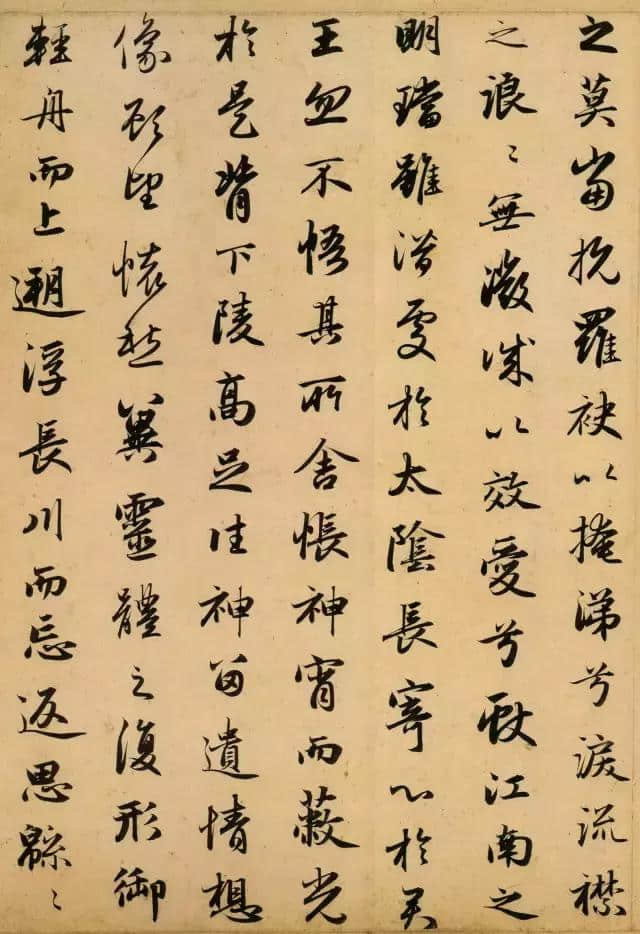 之莫當抗羅袂以掩涕兮淚流襟
之浪〻無微誠以效愛兮獻江南之
明璫雖潛處於太陰長寄心於君
王忽不悟其所舍悵神宵而蔽光
於是背下陵高足往神留遺情想
像顧望懷愁冀靈體之復形御
輕舟而上遡浮長川而忘返思緜〻